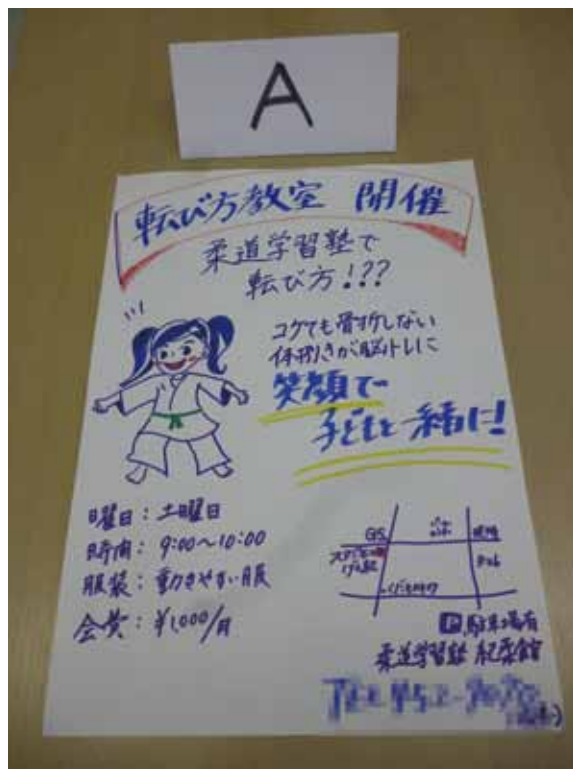 A
転び方教室 開催
柔道学習塾で
転び方!??
コケても骨折しない
体捌きが脳トレに
笑顔で
子どもと一緒に!
曜日:土曜日
時間:9:00〜10:00
服装:動きやすい服
会費:¥1,000/月
GS
P 駐車場有
柔道学習塾 紀柔館